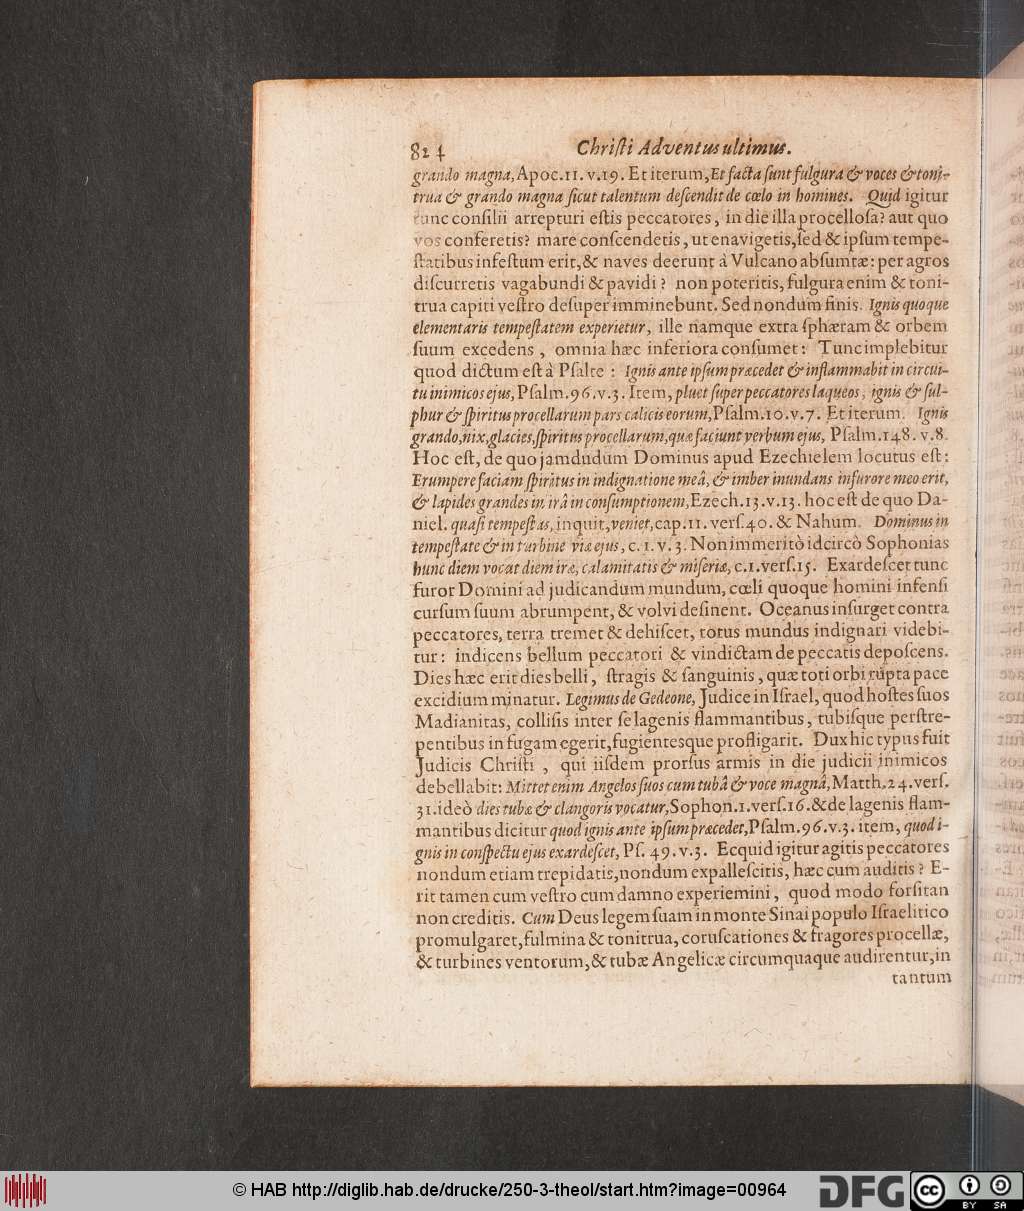 824 Christi Adventus ultimus.
grando magna, Apoc. 11. v. 19. Et iterum, Et facta sunt fulgura & voces & toni-
trua & grando magna sicut talentum descendit de cœlo in homines. Quid igitur
tunc consilii arrepturi estis peccatores, in die illa procellosa? aut quo
vos conferetis? mare conscendetis, ut enavigetis, sed & ipsum tempe-
statibus infestum erit, & naves deerunt à Vulcano absumtæ: per agros
discurretis vagabundi & pavidi? non poteritis, fulgura enim & toni-
trua capiti vestro desuper imminebunt. Sed nondum finis. Ignis quoque
elementaris tempestatem experietur, ille namque extra sphæram & orbem
suum excedens, omnia hæc inferiora consumet: Tunc implebitur
quod dictum est à Psalte: Ignis ante ipsum præcedet & inflammabit in circui-
tu inimicos ejus, Psalm. 96. v. 3. Item, pluet super peccatores laqueos, ignis & sul-
phur & spiritus procellarum pars calicis eorum, Psalm. 10. v. 7. Et iterum. Ignis
grando, nix, glacies, spiritus procellarum, quæ faciunt verbum ejus, Psalm. 148. v. 8.
Hoc est, de quo jamdudum Dominus apud Ezechielem locutus est:
Erumpere faciam spiritus in indignatione meâ, & imber inundans in furore meo erit,
& lapides grandes in irâ in consumptionem, Ezech. 13. v. 13. hoc est de quo Da-
niel. quasi tempestas, inquit, veniet, cap. 11. vers. 40. & Nahum. Dominus in
tempestate & in turbine viæ ejus, c. 1. v. 3. Non immeritò idcircò Sophonias
hunc diem vocat diem iræ, calamitatis & miseriæ, c. 1. vers. 15. Exardescet tunc
furor Domini ad judicandum mundum, cœli quoque homini infensi
cursum suum abrumpent, & volvi desinent. Oceanus insurget contra
peccatores, terra tremet & dehiscet, totus mundus indignari videbi-
tur: indicens bellum peccatori & vindictam de peccatis deposcens.
Dies hæc erit dies belli, stragis & sanguinis, quæ toti orbi rupta pace
excidium minatur. Legimus de Gedeone, Judice in Israel, quod hostes suos
Madianitas, collisis inter se lagenis flammantibus, tubisque perstre-
pentibus in fugam egerit, fugientesque profligarit. Dux hic typus fuit
Judicis Christi, qui iisdem prorsus armis in die judicii inimicos
debellabit: Mittet enim Angelos suos cum tubâ & voce magnâ, Matth. 24. vers.
31. ideò dies tubæ & clangoris vocatur, Sophon. 1. vers. 16. & de lagenis flam-
mantibus dicitur quod ignis ante ipsum præcedet, Psalm. 96. v. 3. item, quod i-
gnis in conspectu ejus exardescet, Ps. 49. v. 3. Ecquid igitur agitis peccatores
nondum etiam trepidatis, nondum expallescitis, hæc cum auditis? E-
rit tamen cum vestro cum damno experiemini, quod modo forsitan
non creditis. Cum Deus legem suam in monte Sinai populo Israelitico
promulgaret, fulmina & tonitrua, coruscationes & fragores procellæ,
& turbines ventorum, & tubæ Angelicæ circumquaque audirentur, in
tantum
© HAB http://diglib.hab.de/drucke/250-3-theol/start.htm?image=00964
DFG
cc BY SA